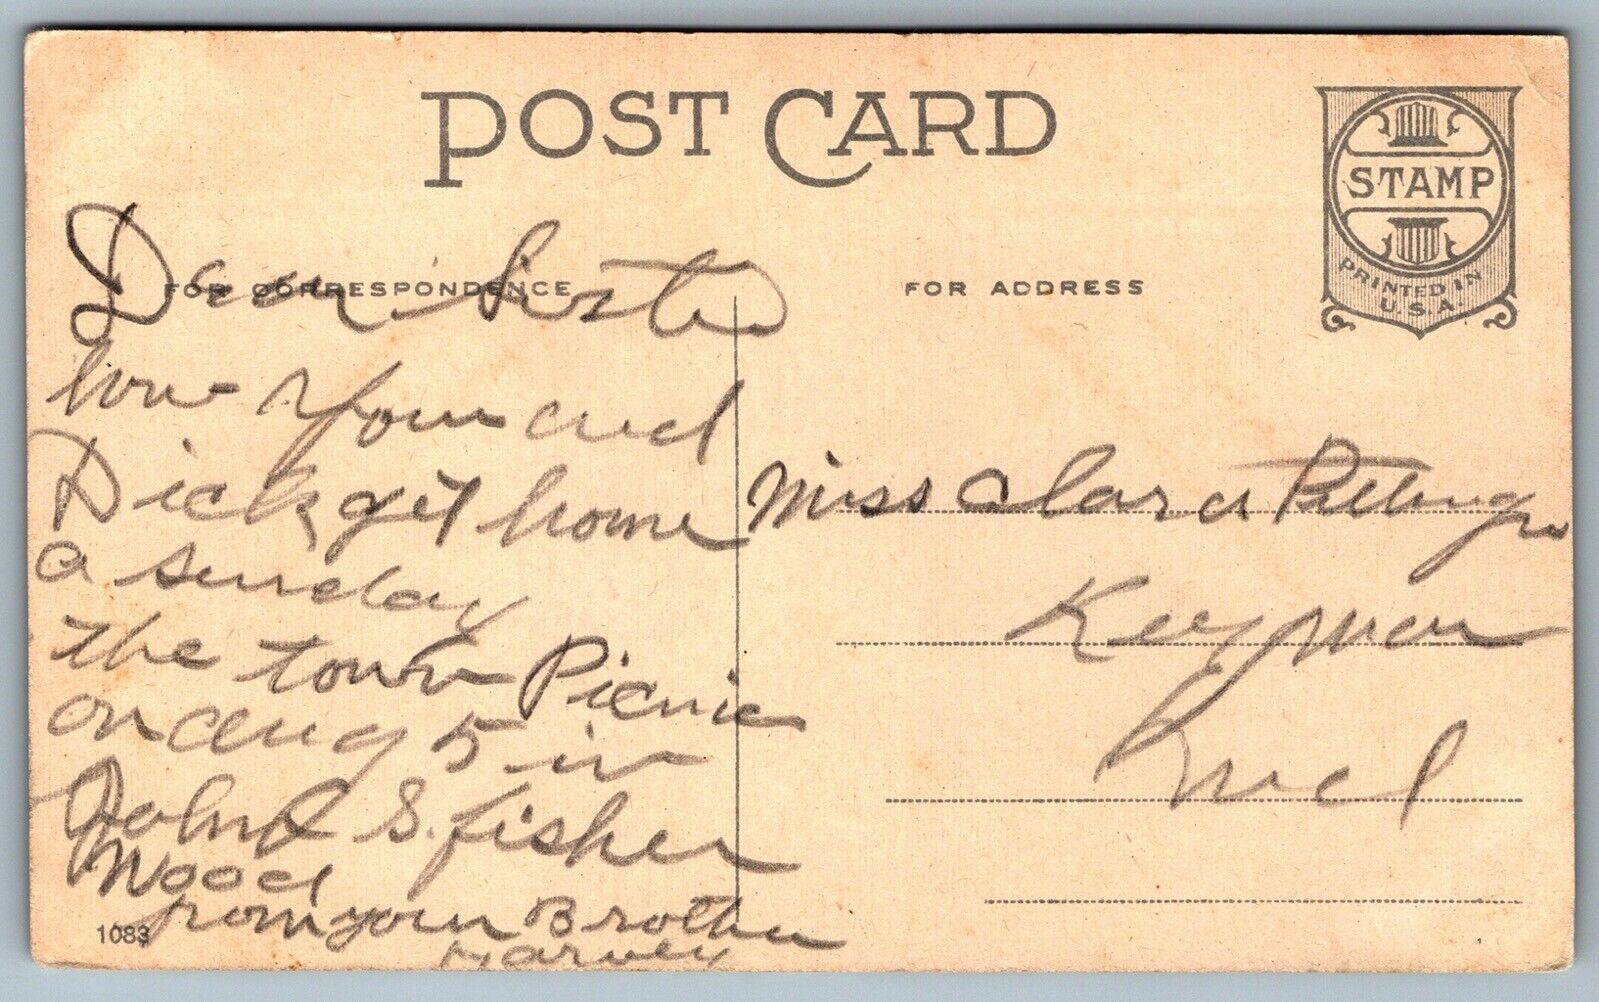 POST CARD
STAMP
PRINTED IN
U.S.A.
FOR CORRESPONDENCE
FOR ADDRESS
Dear Sister
how your and
Dick get home
a sunday
the town Picnic
on aug 5 in
John S. fisher
Wood
from your Brother
Harvey
Miss Clara
Keymar
Md
1083